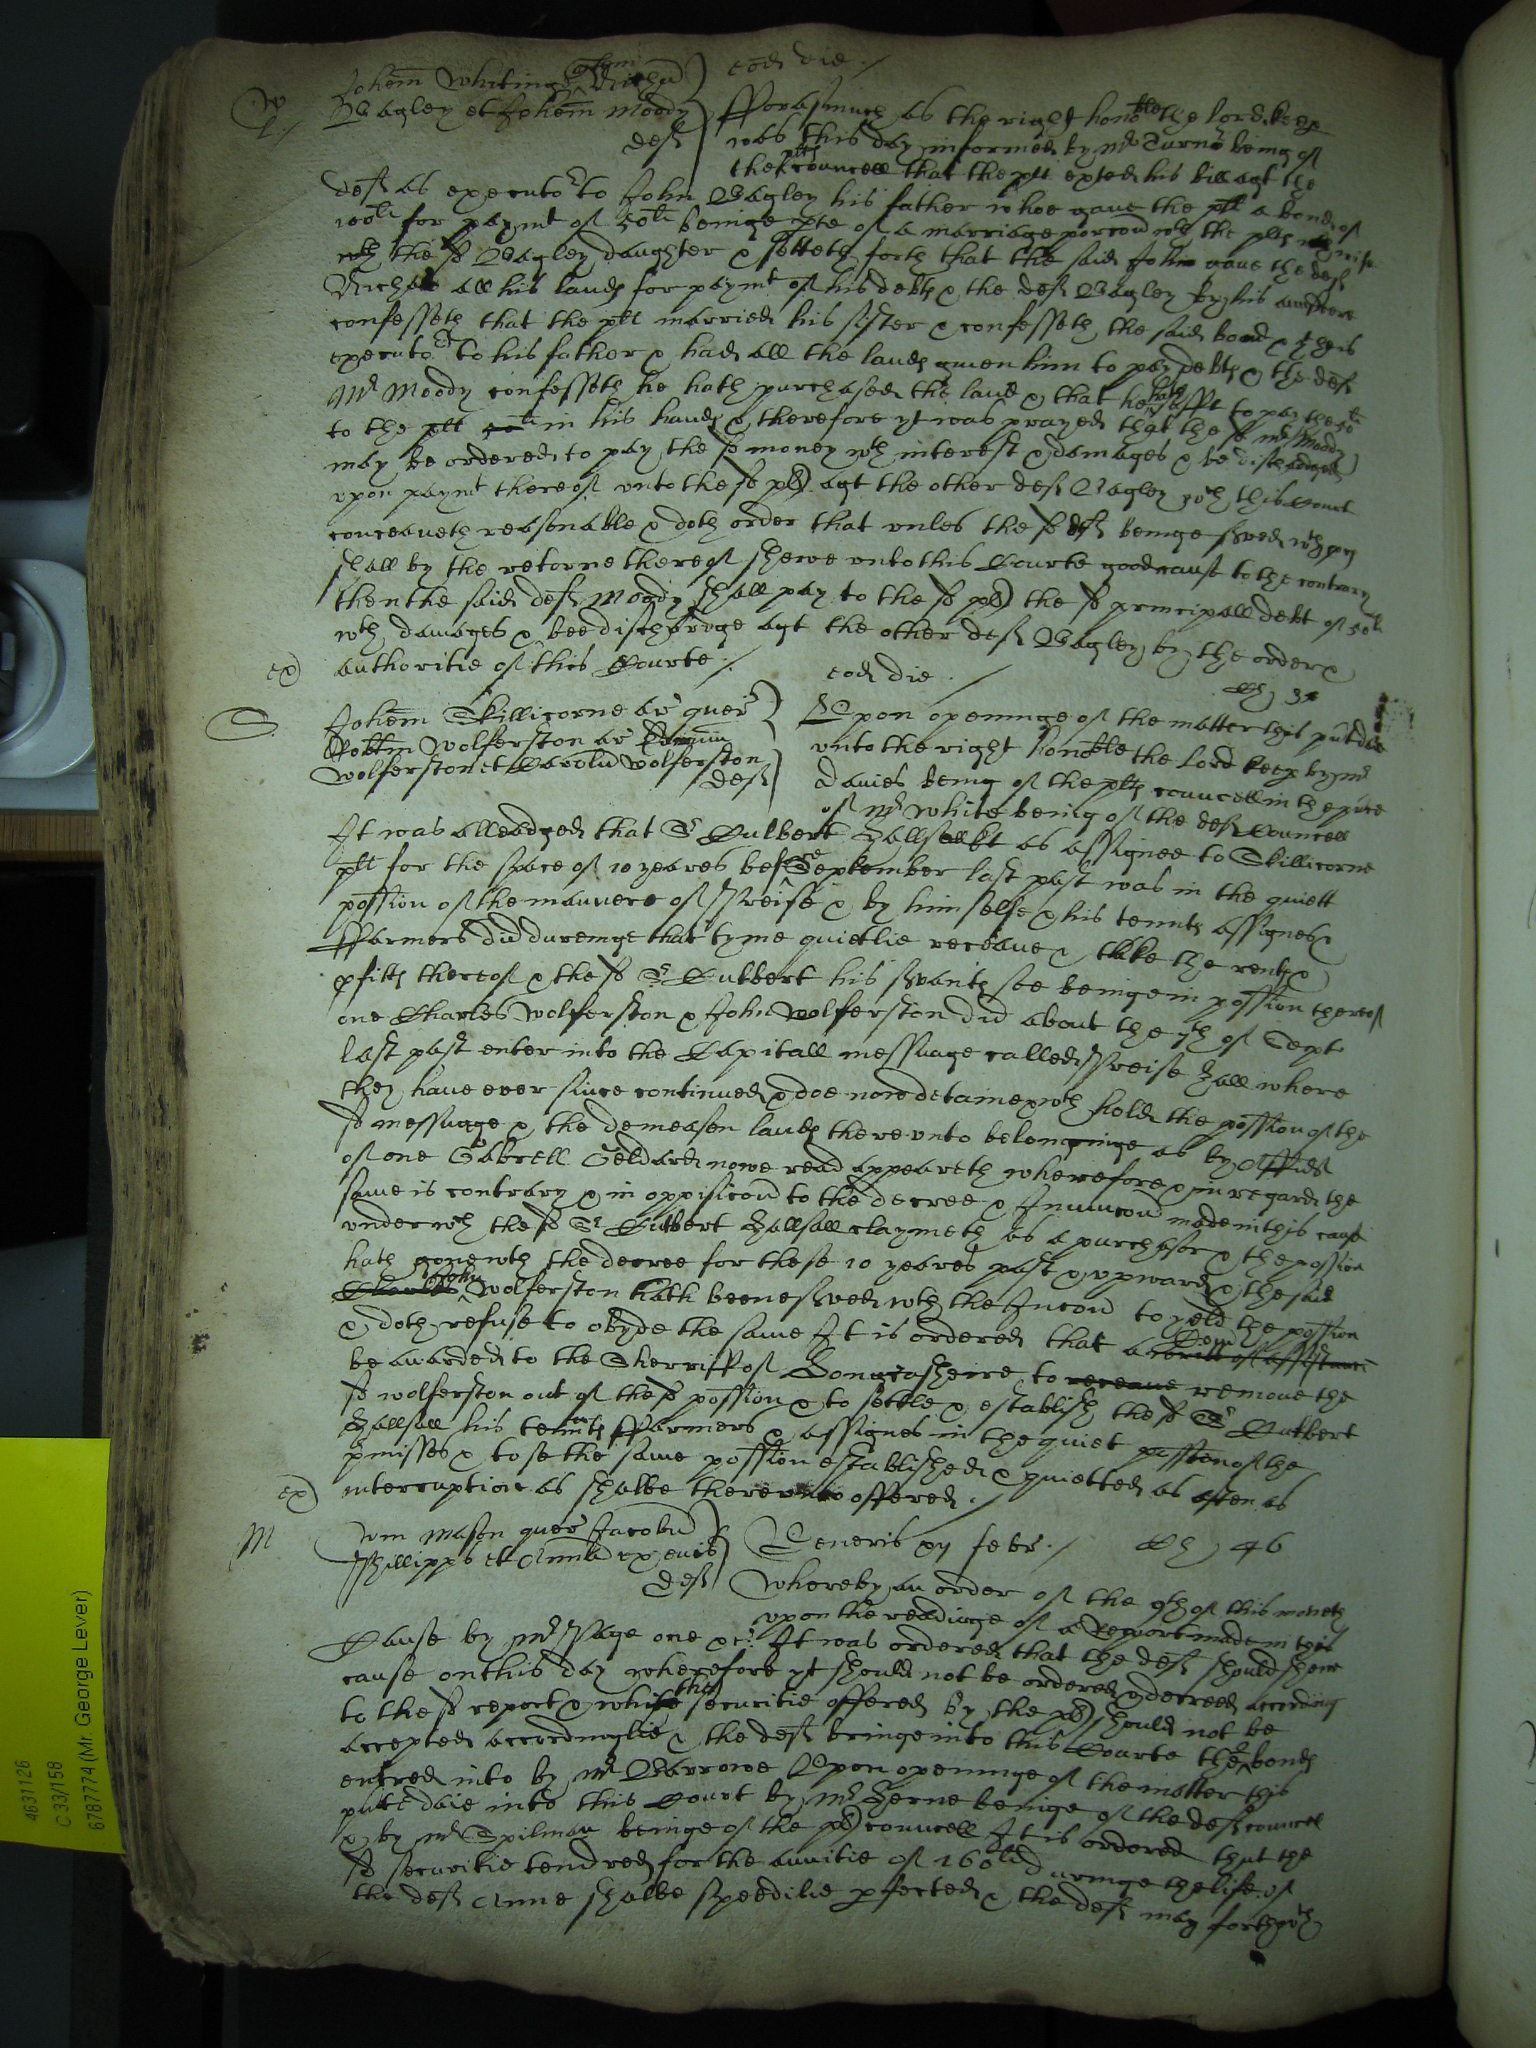 W
Johem Whitinge quer Richu eod die
Bagley et Johem Moody
def
fforasmuch as the right honoble the lord keep
was this day informed by Mr Turnor being of
the plts councell that the plt exhed his bill agt the
def as executor to John Bagley his father whoe gaue the plt a bond of
100li for paymt of 50li beinge pte of a marriage porcon wch the plt
wth the sd Bagley daughter & setteth forth that the said John gaue the def
Richard all his lands for paymt of his debts & the def Bagley by his answere
confesseth that the plt married his sister & confesseth the said bond & that he is
executor to his father & had all the lands giuen him to pay debts & the def
Mr Moody confesseth he hath purchased the land & that he hath sufft to pay the 50li
to the plt in his hands & therefore yt was prayed that the sd Mr Moody
may be ordered to pay the sd money wth interest & damages & be discharged
vpon paymt thereof vnto the sd plt agt the other def Bagley wch this Court
conceaueth reasonable & doth order that vnles the sd def beinge served wth
shall by the retorne thereof shewe vnto this Courte good cause to the contrary
then the said def Moody shall pay to the sd plt the sd principall debt of 50li
wth damages & bee discharge agt the other def Bagley by the order &
ex authoritie of this Courte
eod die
S
Johem Skillicorne ar quer
Robtm Wolferston ar
Wolferston et Carolu Wolferston
def
Vpon openinge of the matter this pnte daie
vnto the right honoble the Lord keep by Mr
Davies being of the plts councell in the pnce
of Mr White being of the def Councell
It was alleadged that Sr Cutbert Hallsall kt as assignee to Skillicorne
plt for the space of 10 yeares bef September last past was in the quiett
possion of the mannere of Preise & by himselfe & his tennts assignes &
ffarmers did dureinge that tyme quietlie receaue & take the rents &
pfitts thereof & the sd Sr Cutbert his servants soe beinge in possion thereof
one Charles Wolferston & John Wolferston did about the 7th of Sept
last past enter into the Capitall messuage called Preise Hall where
they haue ever since continued & doe now detaine & wth hold the possion of the
sd messuage & the demeasen lands there vnto belonginge as by Affidt
of one Gabrell Geldard nowe read appeareth wherefore & in regard the
same is contrary & in opposicon to the decree & Iniunccon made in this cause
vnder wch the sd Sr Cutbert Hallsall claymeth as a purchasor & the possion
hath gone wth the decree for these 10 yeares past & vpwards & the said
Charles John Wolferston hath beene served wth the Incon to yeld the possion
& doth refuse to obyde the same It is ordered that a writt of assistance
be awarded to the Sherriff of Loncasheire to receaue remoue the
sd Wolferston out of the sd possion & to settle & establish the sd Sr Cutbert
Hallsall his tennts ffarmers & assignes in the quiet possion of the
pmisses & to se the same possion established & quietted as often as
ex interruption as shalbe therevnto offered
M
Wm Mason quer Jacobu
Phillipps et Anna ux eius
def
Veneris xij febr
46
Whereby an order of the 9th of this moneth
vpon the readinge of a Report made in this
Cause by Mr Page one &c It was ordered that the def should shew
cause on this day wherefore yt should not be ordered & decreed according
to the sd report & why the securitie offered by the plt should not be
accepted accordinglie & the def bringe into this Courte the 2 bonds
entred into by Mr Barrowe Vpon openinge of the matter this
pnte daie into this Court by Mr Herne beinge of the def councel
& by Mr Spilman beinge of the plt councell It is ordered that the
sd securitie tendred for the anuitie of 160li duringe the life of
the def Anne shalbe speedilie pfected & the def may forthwth
4631126
C 33/158
6787774 (Mr. George Lever)